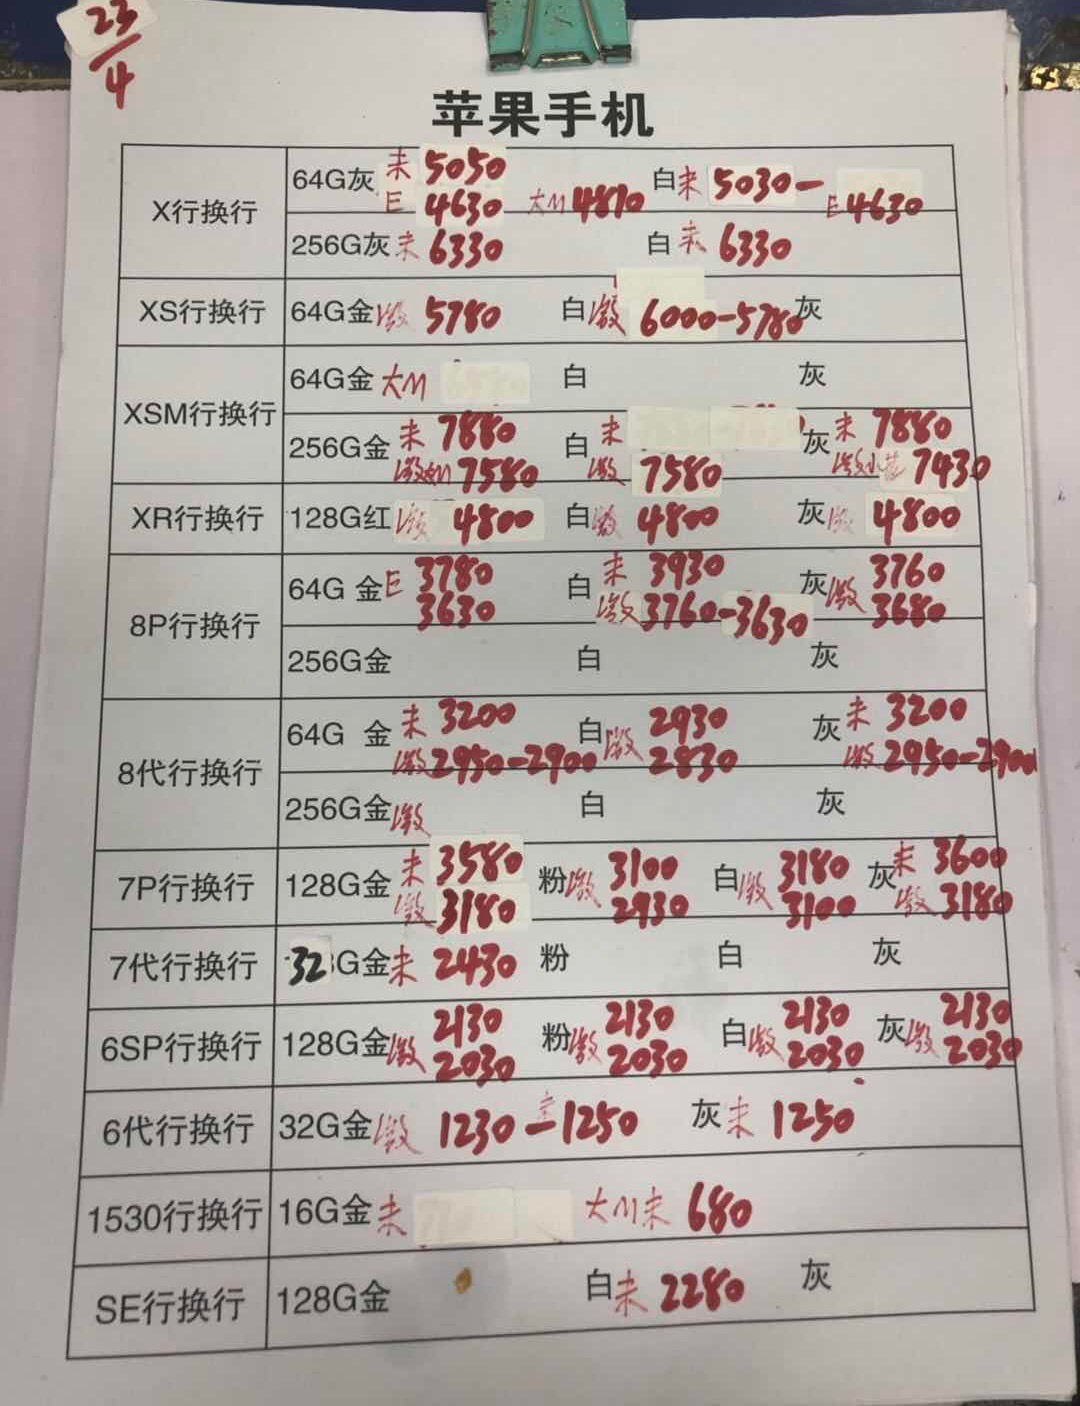 23/4
苹果手机
X行换行 64G灰 未 5050 白 未 5030-
E 4630 大M 4810 E 4630
256G灰 未 6330 白 未 6330
XS行换行 64G金 激 5780 白 激 6000-5780 灰
XSM行换行 64G金 大M 白 灰
256G金 未 7880 白 未 灰 未 7880
激 7580 激 7580 激 7430
XR行换行 128G红 激 4800 白 激 4800 灰 激 4800
8P行换行 64G 金 E 3780 白 未 3930 灰 激 3760
3630 激 3760-3630 3680
256G金 白 灰
8代行换行 64G 金 未 3200 白 激 2930 灰 未 3200
激 2950-2900 2830 激 2950-2900
256G金 激 白 灰
7P行换行 128G金 未 3580 粉 激 3100 白 激 3180 灰 未 3600
激 3180 2930 3100 激 3180
7代行换行 32G金 未 2430 粉 白 灰
6SP行换行 128G金 激 2130 粉 激 2130 白 激 2130 灰 激 2130
2030 2030 2030 2030
6代行换行 32G金 激 1230-未1250 灰 未 1250
1530行换行 16G金 未 大M未 680
SE行换行 128G金 白 未 2280 灰